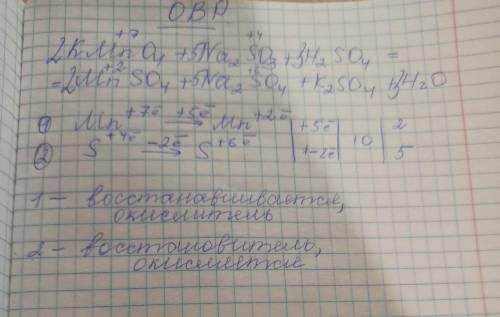 ОВР
2KMn⁺⁷O₄ + 5Na₂S⁺⁴O₃ + 3H₂SO₄ =
= 2Mn⁺²SO₄ + 5Na₂SO₄ + K₂SO₄ + 3H₂O
① Mn⁺⁷ᵉ̄ +5ē → Mn⁺²ᵉ̄ | +5ē | 10 | 2
② S⁺⁴ᵉ̄ −2ē → S⁺⁶ᵉ̄ | −2ē | 5
1 - восстанавливается,
окислитель
2 - восстановитель,
окисляется